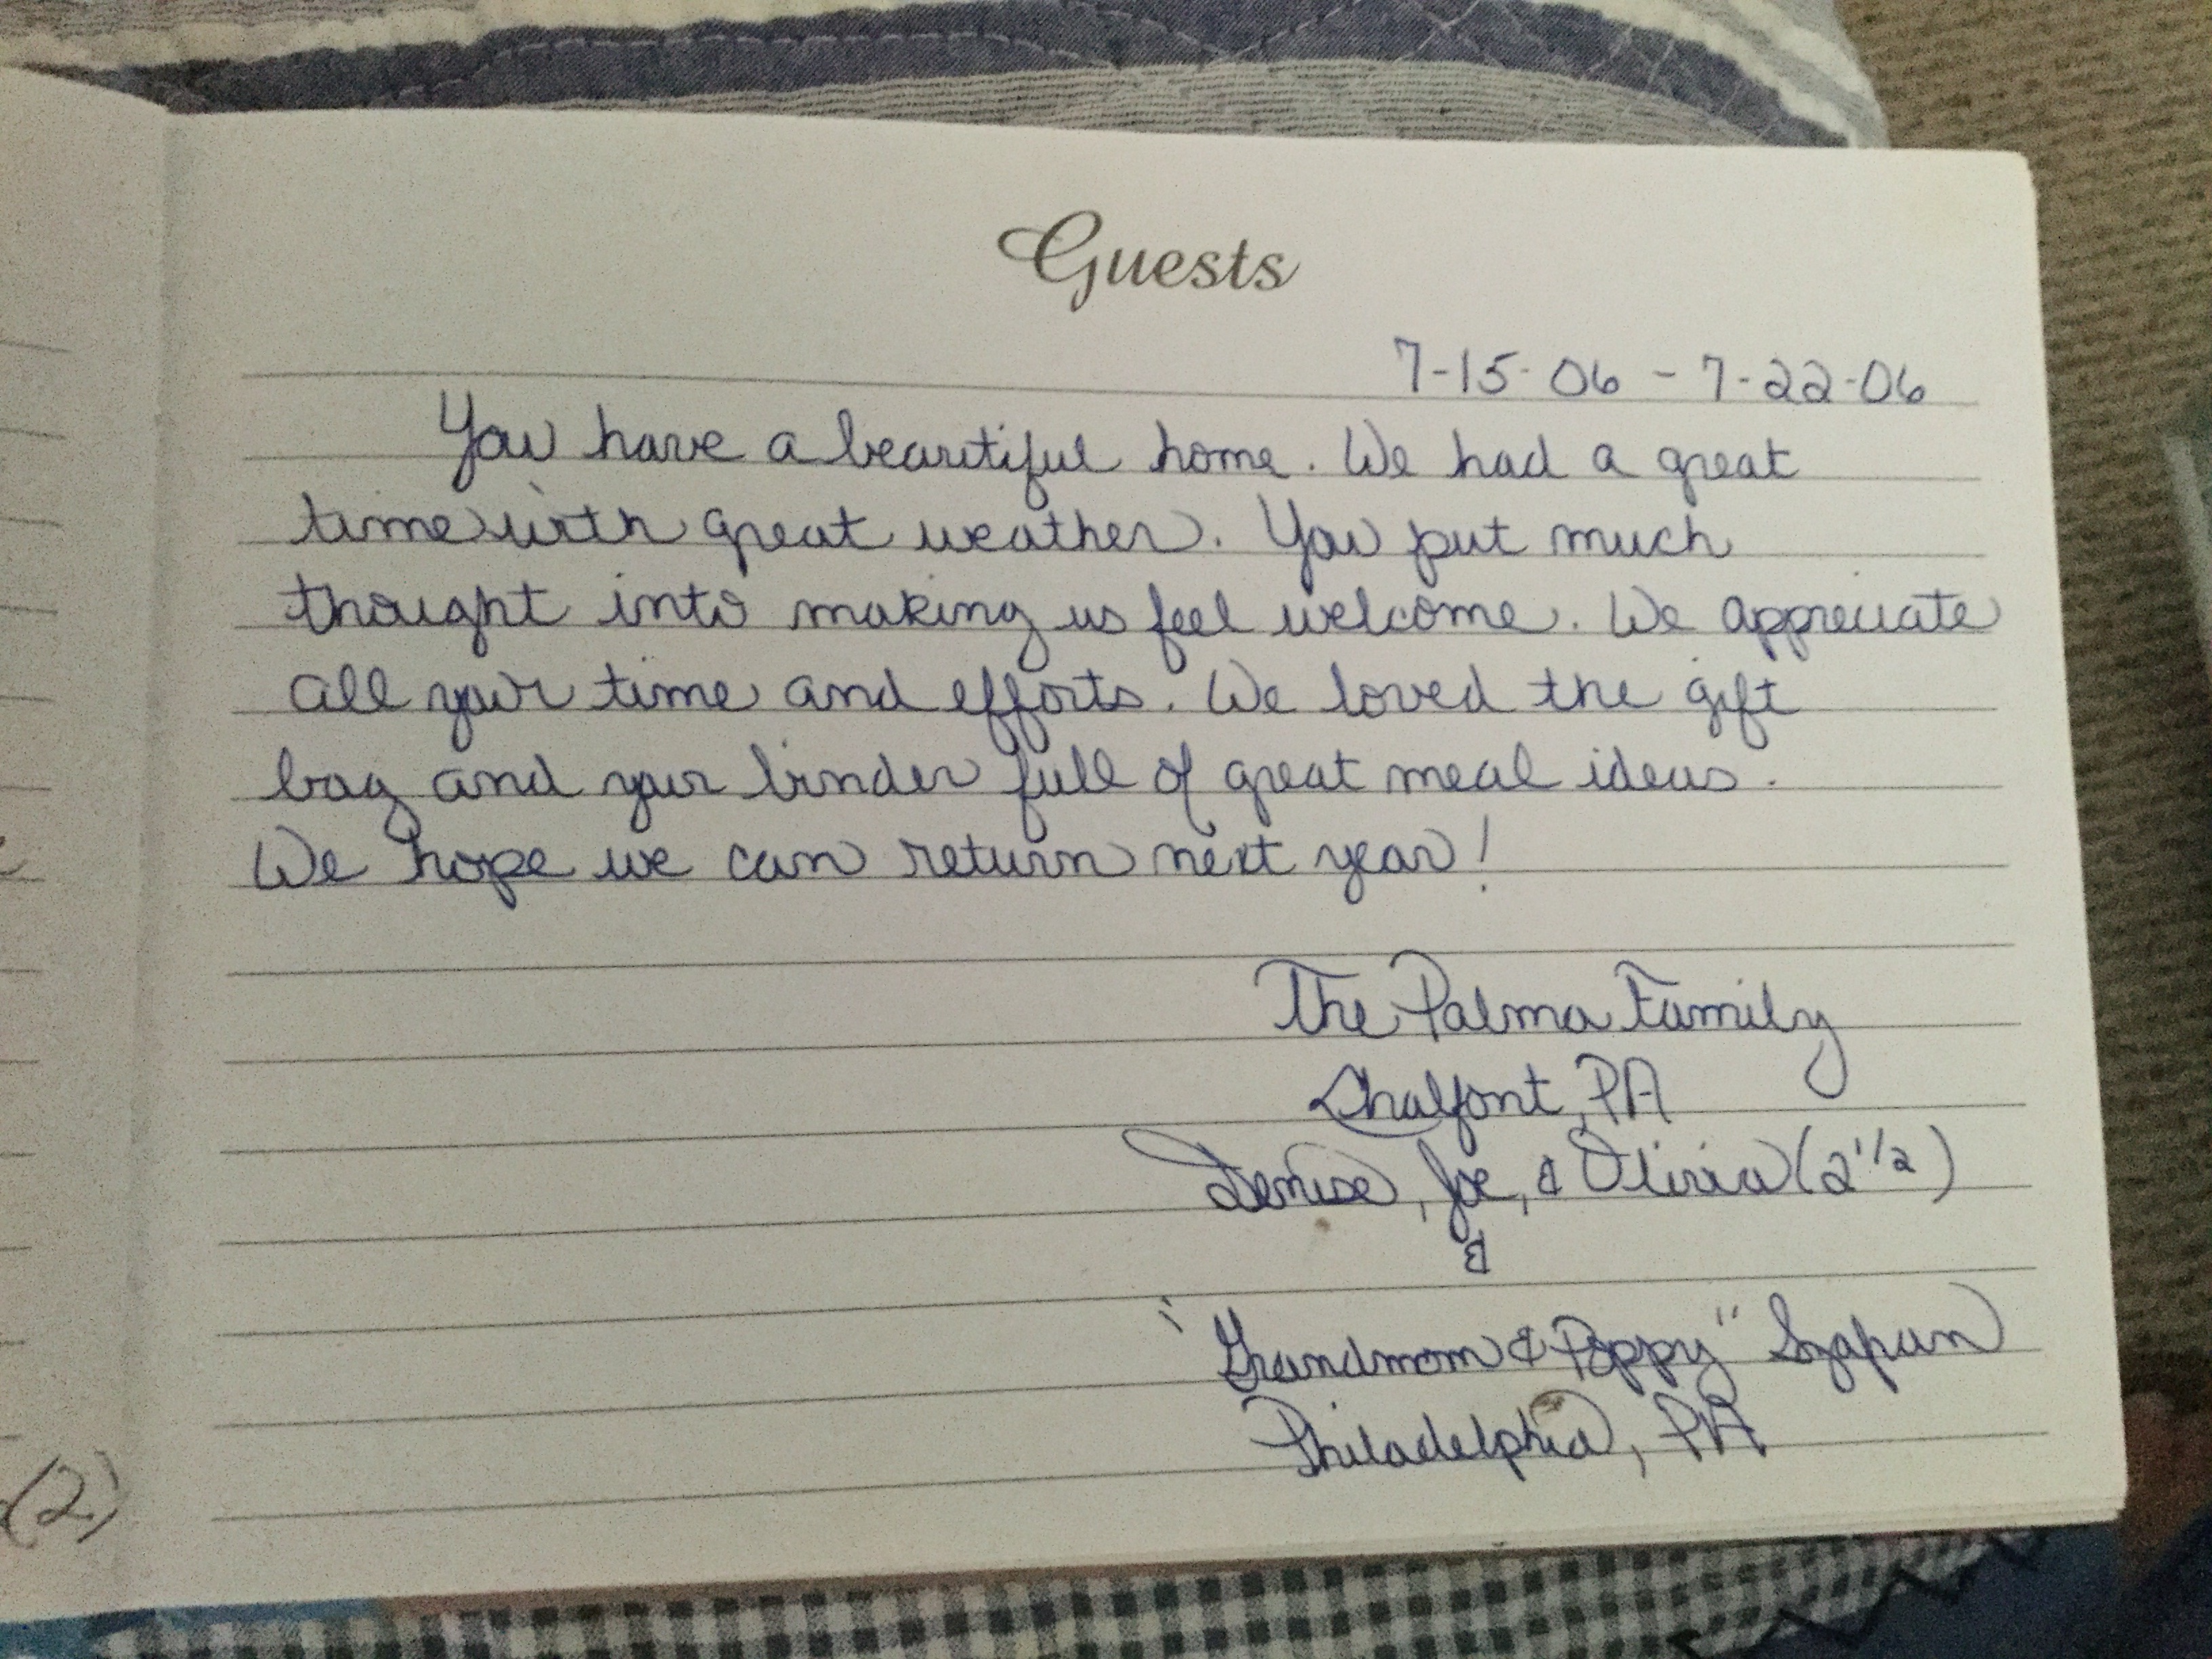 Guests
7-15-06 - 7-22-06
You have a beautiful home. We had a great
time with great weather. You put much
thought into making us feel welcome. We appreciate
all your time and efforts. We loved the gift
bag and your binder full of great meal ideas.
We hope we can return next year!
The Palma Family
Chalfont, PA
Denise, Joe, & Olivia (2 1/2)
&
"Grandmom & Poppy" Szapun
Philadelphia, PA
(2)